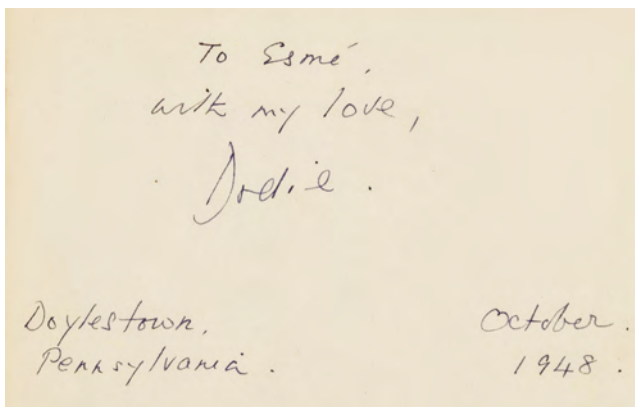 To Esmé,
with my love,
Dodie.
Doylestown,
Pennsylvania.
October.
1948.